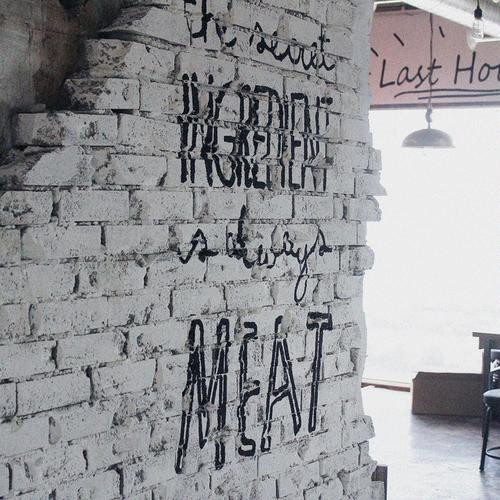 the secret
INGREDIENT
is always
MEAT
Last Ho